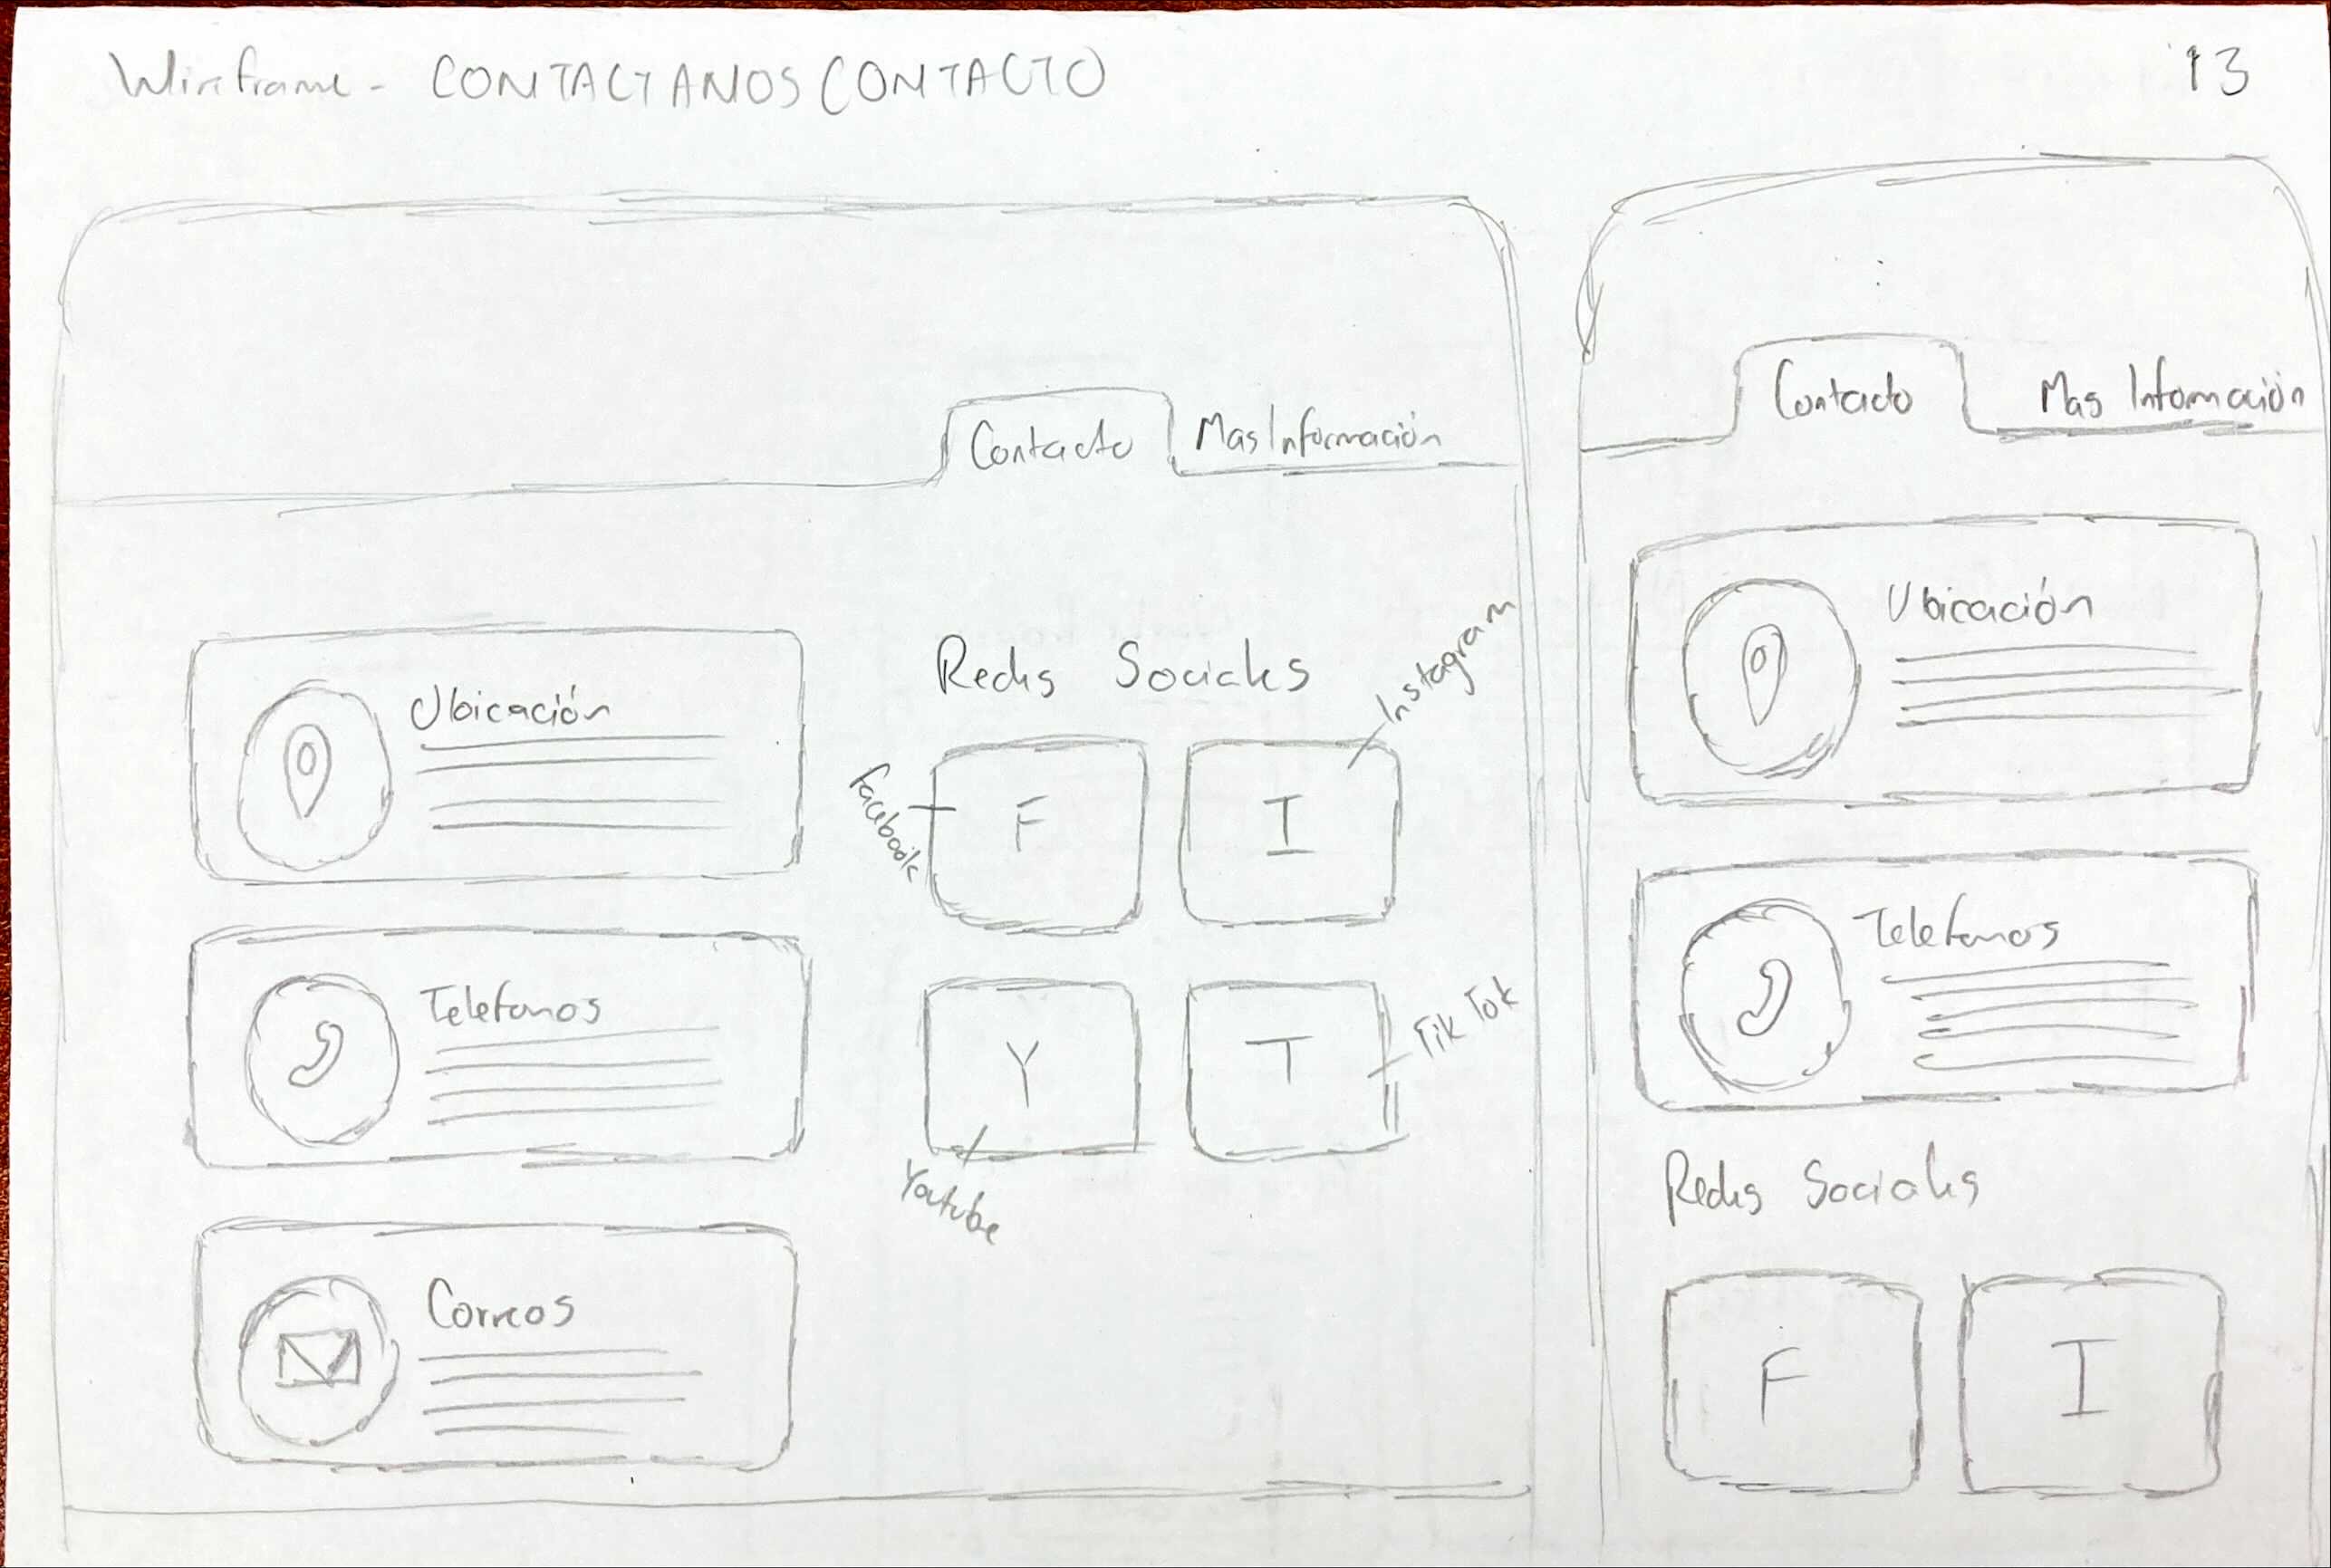 Wireframe - CONTACTANOS CONTACTO
13
Contacto
Mas Información
Ubicación
Telefonos
Correos
Redes Sociales
Facebook
F
Instagram
I
Y
Youtube
T
Tik Tok
Contacto
Mas Información
Ubicación
Telefonos
Redes Sociales
F
I